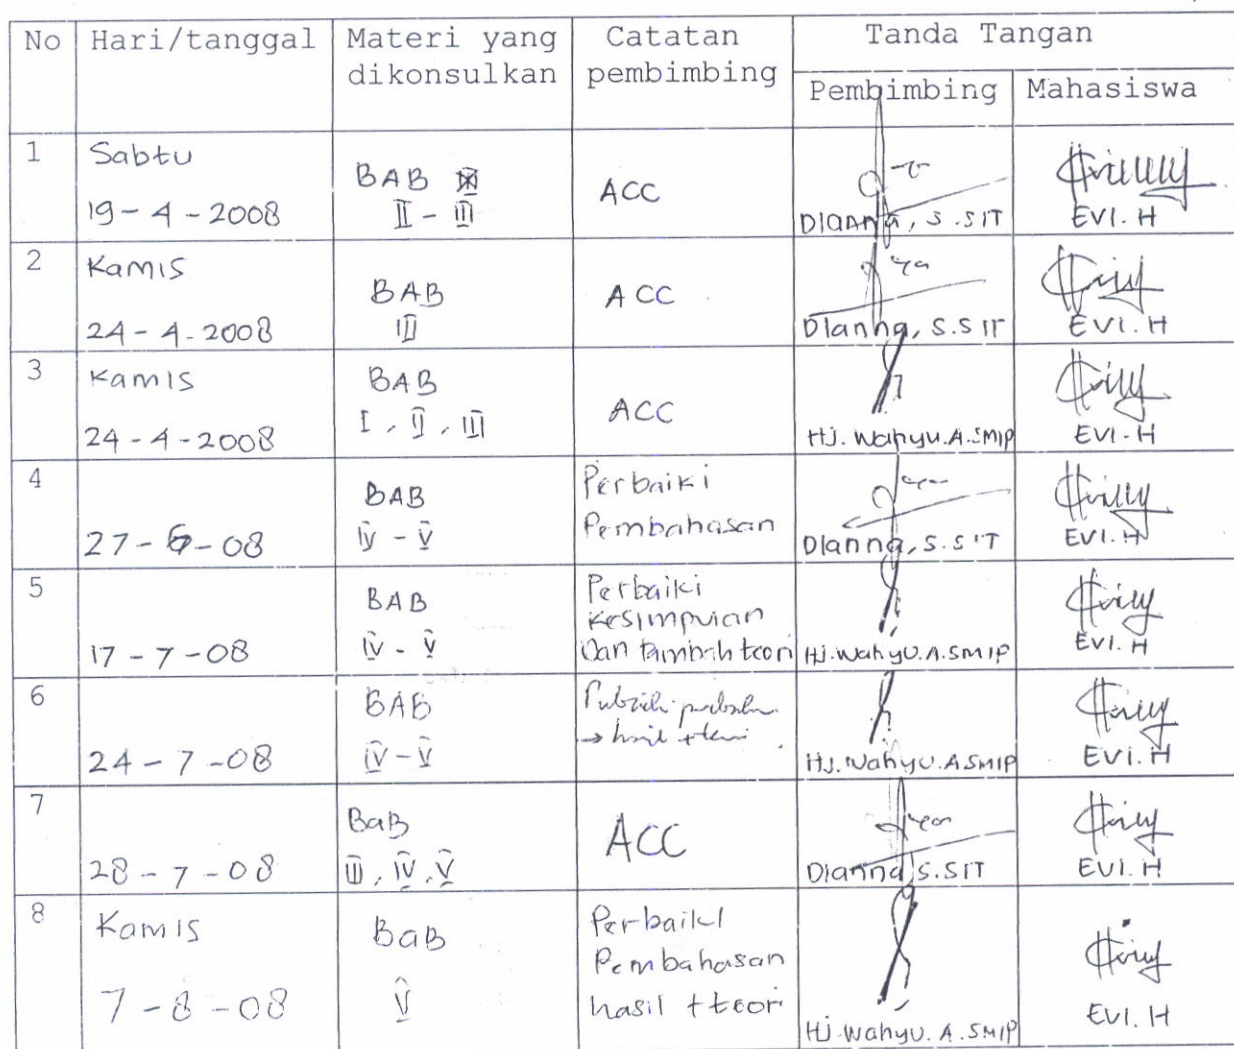 No Hari/tanggal Materi yang dikonsulkan Catatan pembimbing Tanda Tangan
Pembimbing Mahasiswa
1 Sabtu
19-4-2008
BAB
II - III
ACC
Dianna, S.SIT
EVI. H
2 Kamis
24-4-2008
BAB
III
ACC
Dianna, S.SIT
EVI. H
3 Kamis
24-4-2008
BAB
I, II, III
ACC
Hj. Wahyu.A.SMIP
EVI. H
4
27-6-08
BAB
IV - V
Perbaiki
Pembahasan
Dianna, S.SIT
EVI. H
5
17-7-08
BAB
IV - V
Perbaiki
Kesimpulan
Dan tambah teori
Hj. Wahyu.A.SMIP
EVI. H
6
24-7-08
BAB
IV - V
Hj. Wahyu.A SMIP
EVI. H
7
28-7-08
BaB
III, IV, V
ACC
Dianna, S.SIT
EVI. H
8 Kamis
7-8-08
BaB
V
Perbaiki
Pembahasan
hasil + teori
Hj. Wahyu. A. SMIP
EVI. H